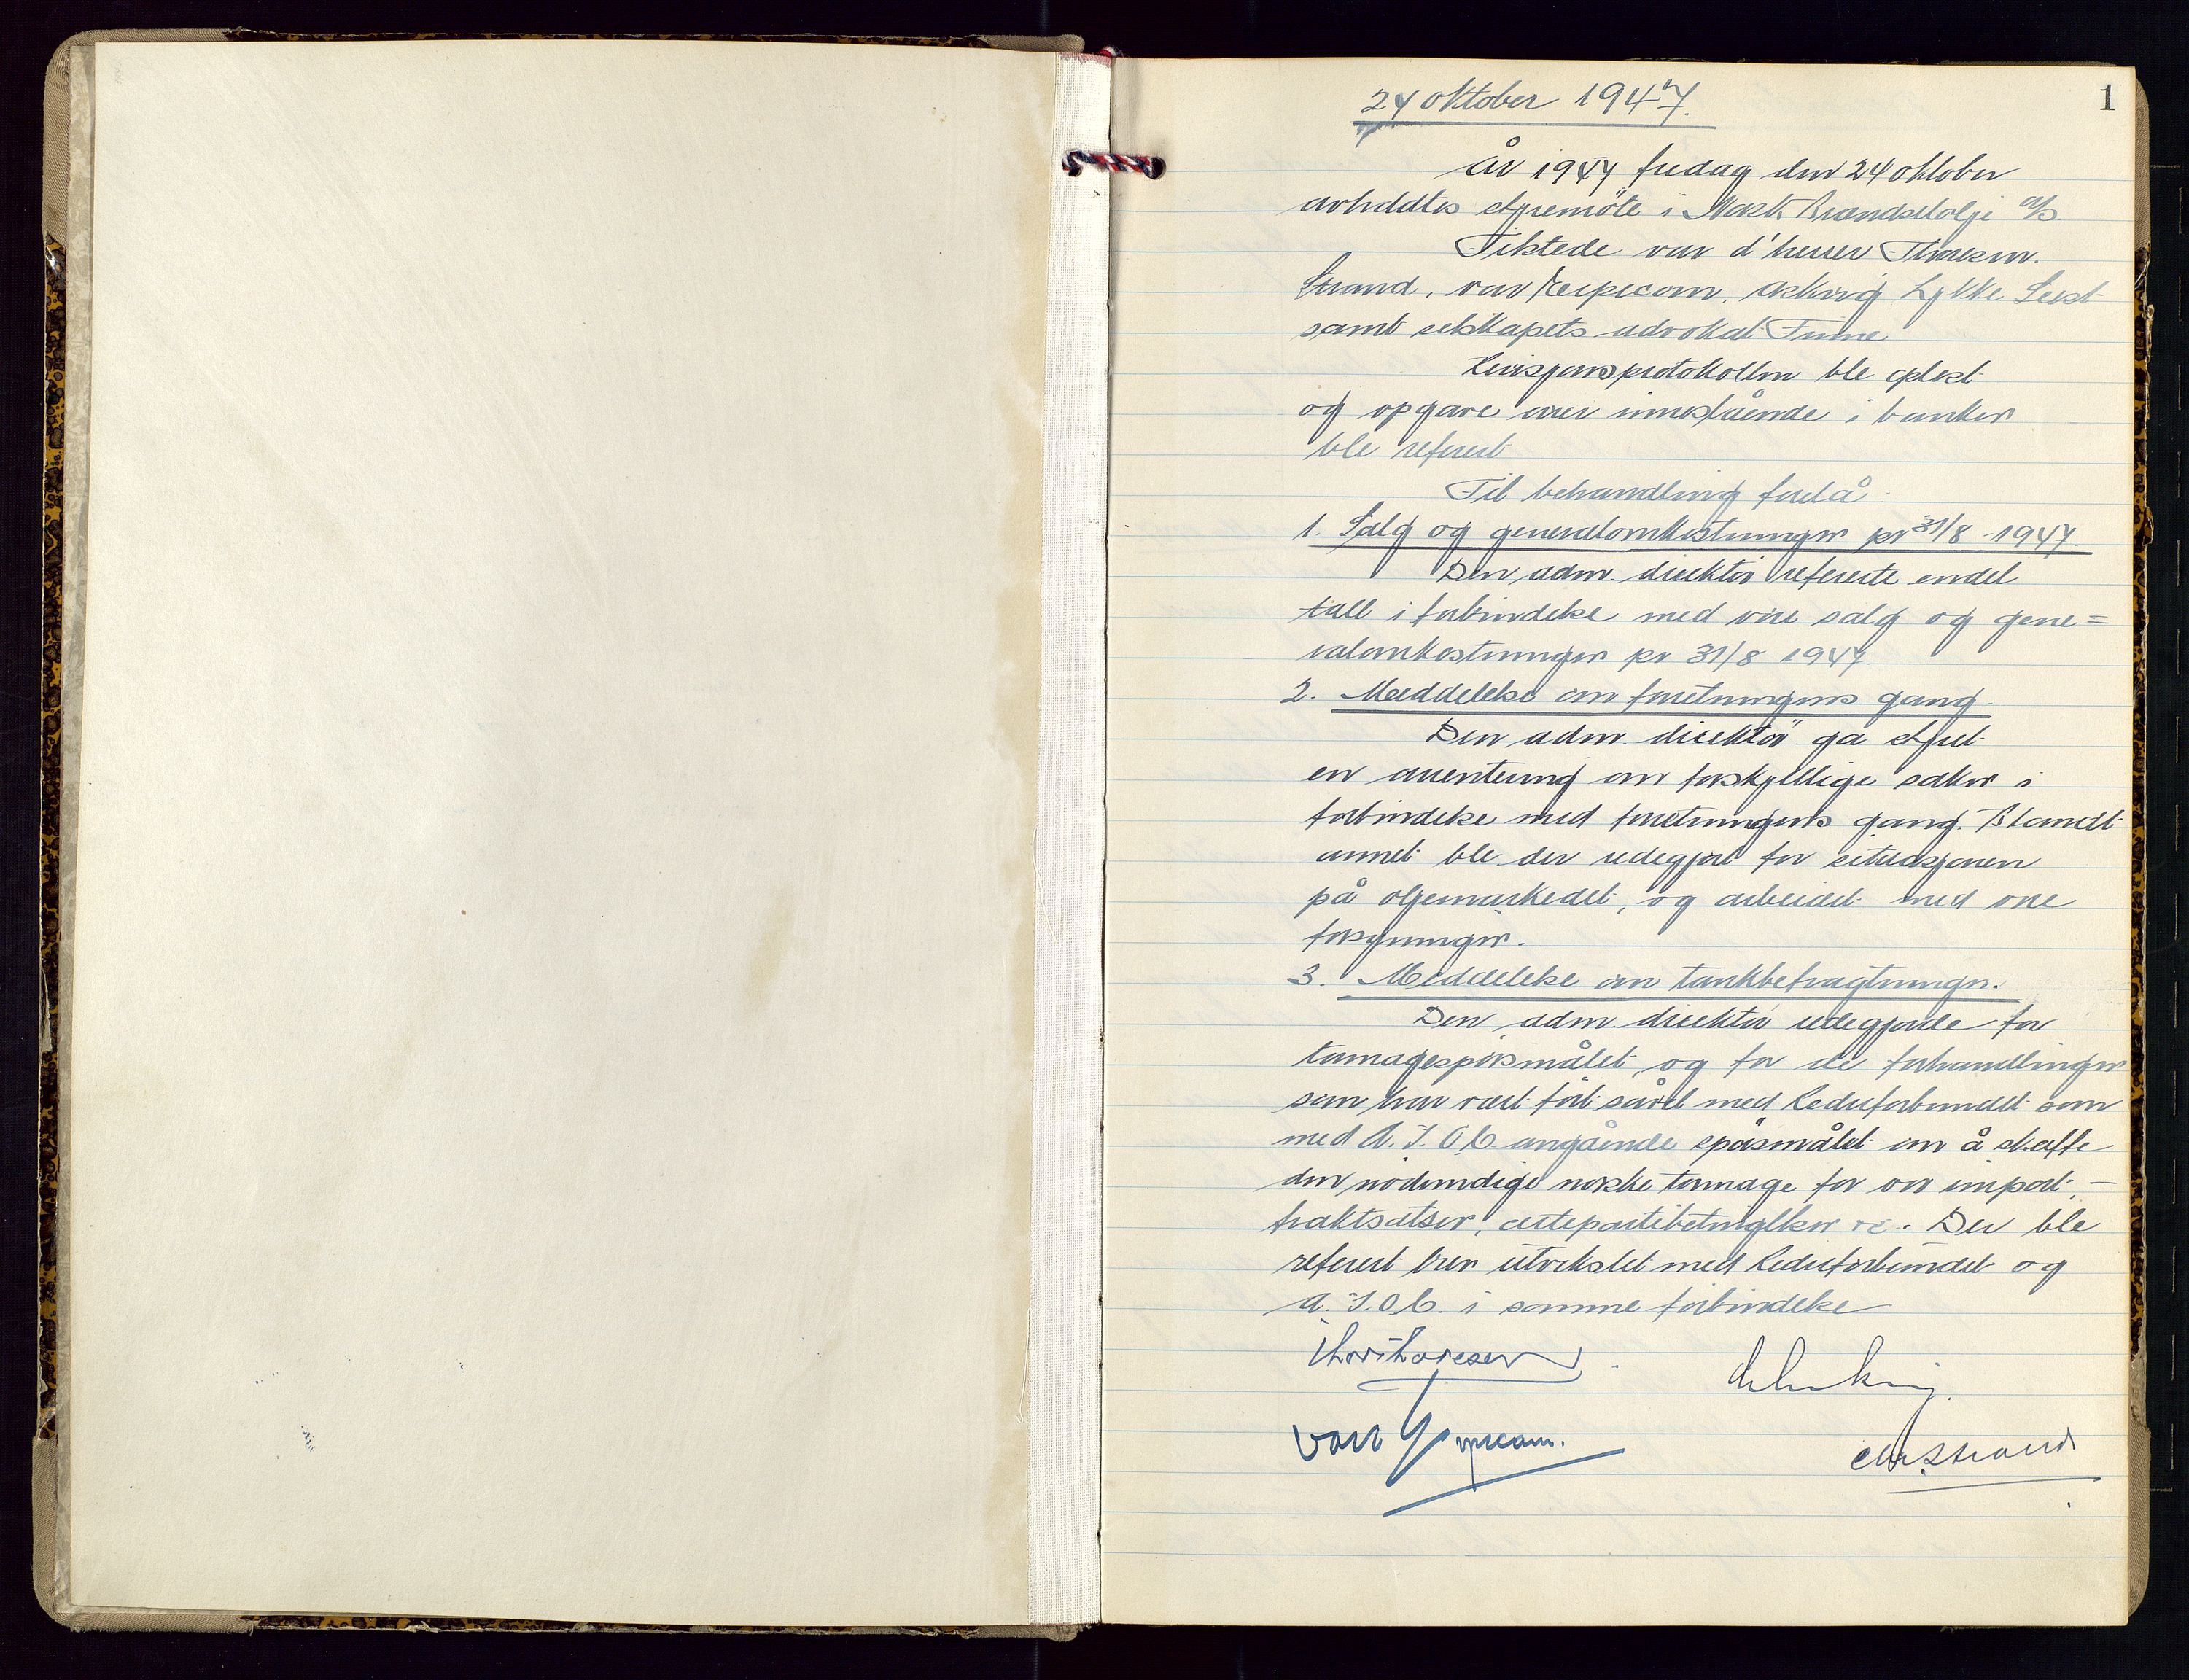 1
24 oktober 1947.
År 1947 fredag den 24 oktober
avholdtes styremöte i Norsk Brændselolje A/S.
Tilstede var d'herrer Thoresen.
Strand, van Lykke
samt selskapets advokat
Revisjonsprotokollen ble oplest
og opgave over innestående i banker
ble referert
Til behandling forelå.
1. Salg og generalomkostninger pr 31/8 1947.
Den adm. direktör refererte endel
tall i forbindelse med våre salg og gene=
ralomkostninger pr 31/8 1947
2. Meddelelse om forretningens gang.
Den adm. direktör ga styret
en orientering om forskjellige saker i
forbindelse med forretningens gang. Blandt
annet ble der redegjort for situasjonen
på oljemarkedet, og arbeidet med våre
forsyninger.
3. Meddelelse om tankbefragtninger.
Den adm. direktör redegjorde for
tonnagespörsmålet, og for de forhandlinger
som har vært fört såvel med Rederforbundet som
med A.I.O.C. angående spörsmålet om å skaffe
den nödvendige norske tonnage for vår import, -
fraktsatser, certepartibetingelser . Der ble
referert brev utvekslet med Rederforbundet og
A.I.O.C. i samme forbindelse
Thor Thoresen
van
Chr. Strand